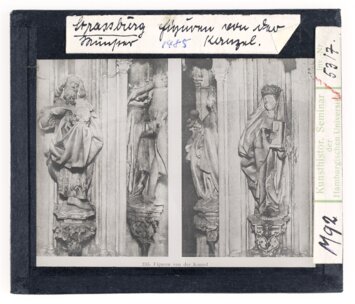 Strassburg Figuren von der
Münster 1485 Kanzel.
Figuren von der Kanzel
Kunsthistor. Seminar
der
Hamburgischen Universität
53/7.
M92